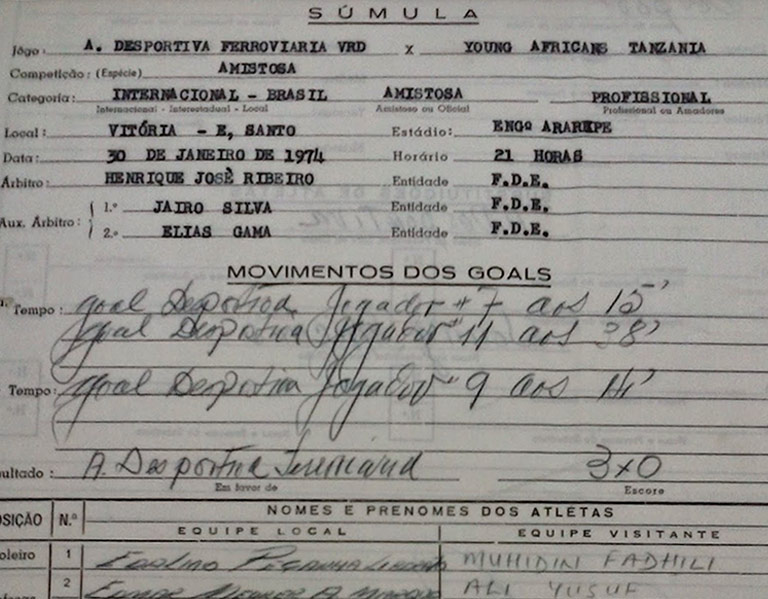 SÚMULA
Jôgo: A. DESPORTIVA FERROVIARIA VRD x YOUNG AFRICANS TANZANIA
Competicão: (Espécie) AMISTOSA
Categoria: INTERNACIONAL - BRASIL AMISTOSA PROFISSIONAL
Internacional - Interestadual - Local Amistoso ou Oficial Profissional ou Amadores
Local: VITÓRIA - E, SANTO Estádio: ENGº ARARIPE
Data: 30 DE JANEIRO DE 1974 Horário 21 HORAS
Árbitro: HENRIQUE JOSÈ RIBEIRO Entidade F.D.E.
Aux. Árbitro: 1.º JAIRO SILVA Entidade F.D.E.
2.º ELIAS GAMA Entidade F.D.E.
MOVIMENTOS DOS GOALS
Tempo: goal Desportiva Jogador # 7 aos 15'
goal Desportiva Jogador " 11 aos 38'
Tempo: goal Desportiva Jogador " 9 aos 14'
ultado: A. Desportiva 3x0
Em favor de Escore
NOMES E PRENOMES DOS ATLÉTAS
OSIÇÃO N.º EQUIPE LOCAL EQUIPE VISITANTE
oleiro 1 MUHIDINI FADHILI
2 ALI YUSUF